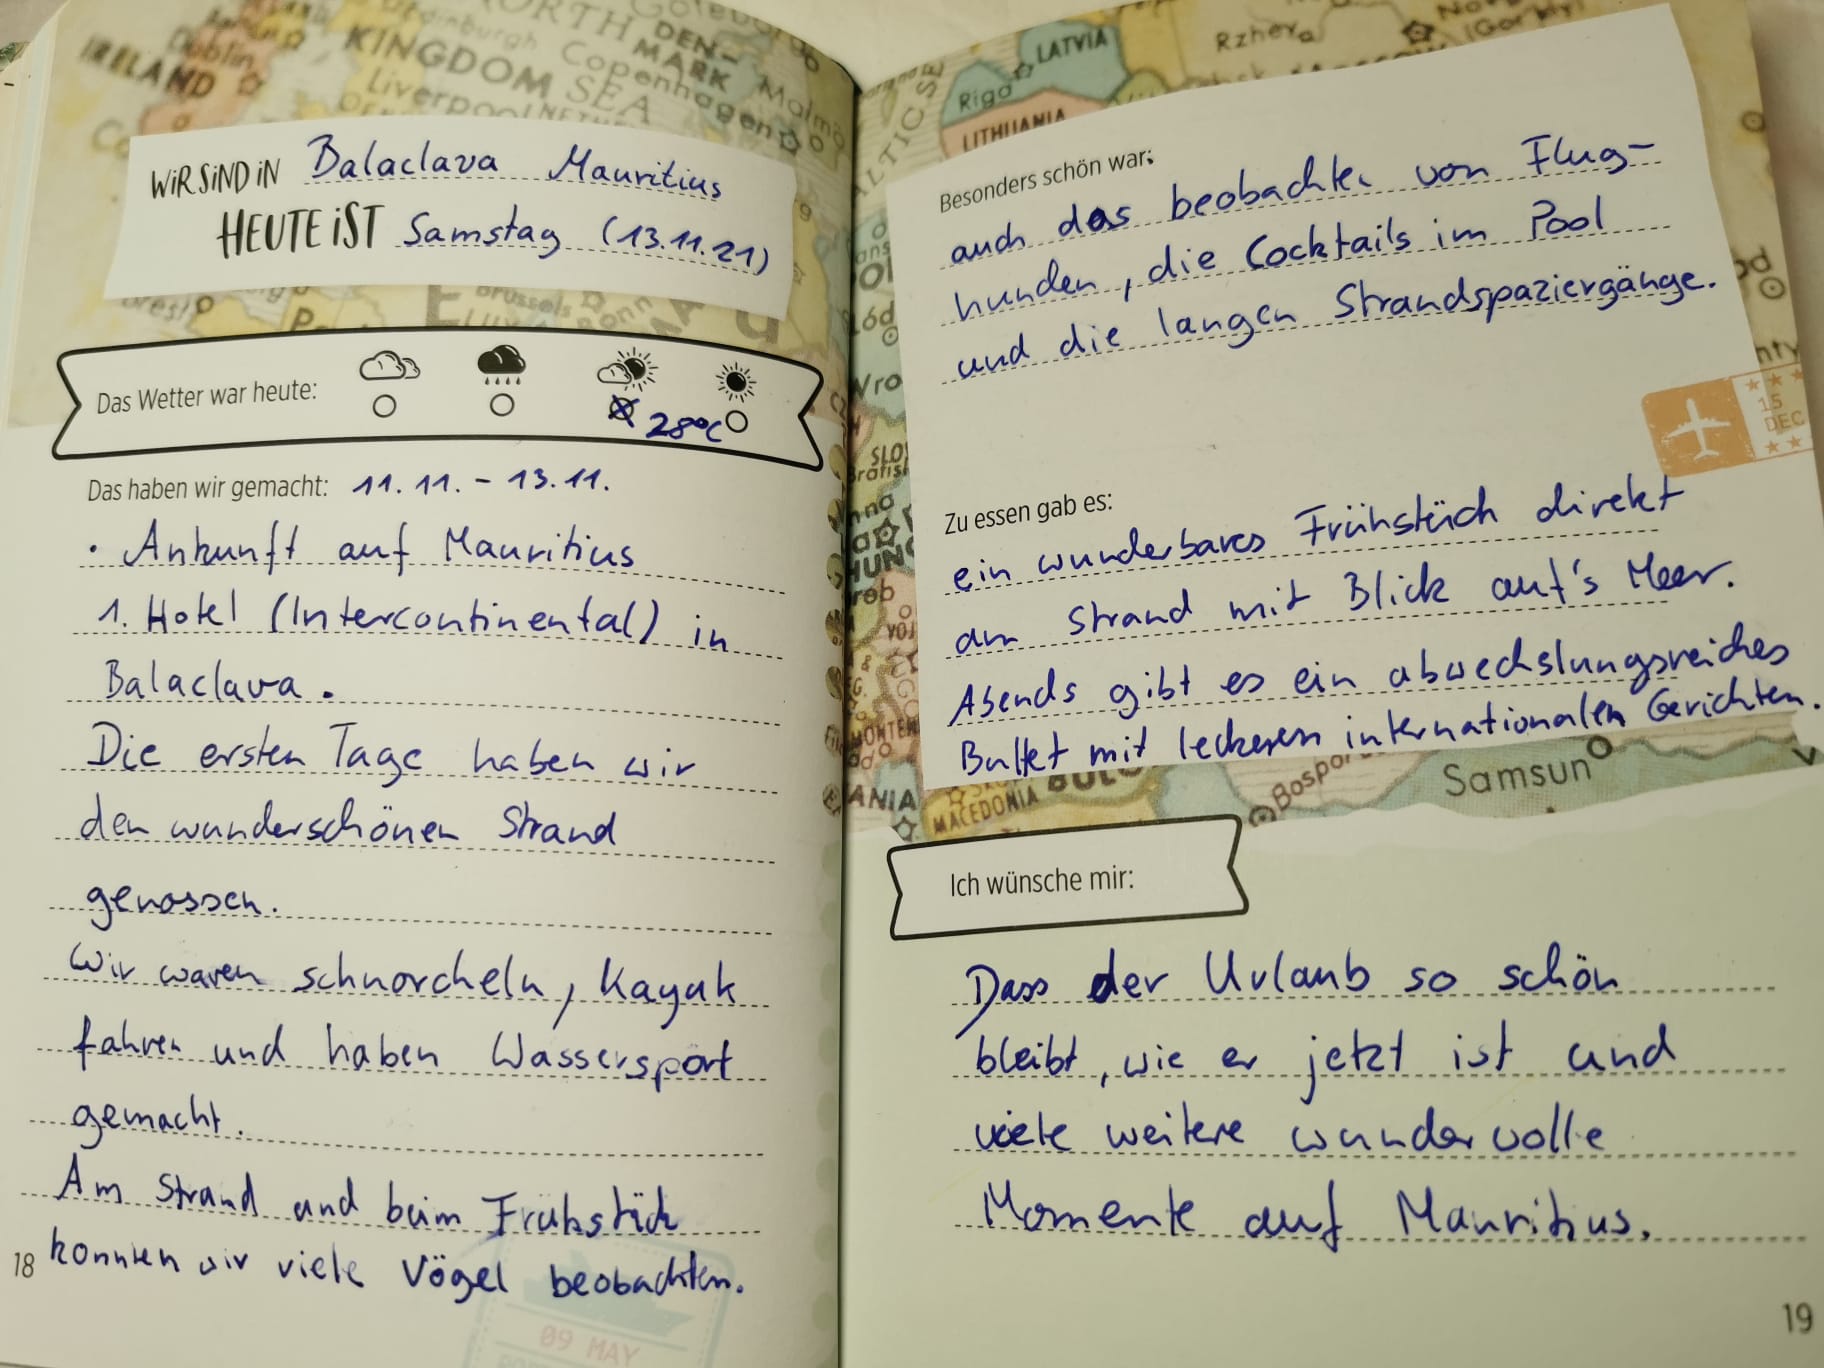 IRELAND
Dublin
KINGDOM
Liverpool
NORTH
SEA
DEN-
MARK
Copenhagen
Malmö
Brussels
Bonn
WIR SIND IN Balaclava Mauritius
HEUTE IST Samstag (13.11.21)
Das Wetter war heute:
28°C
Das haben wir gemacht: 11.11. - 13.11.
• Ankunft auf Mauritius
1. Hotel (Intercontinental) in
Balaclava.
Die ersten Tage haben wir
den wunderschönen Strand
genossen.
Wir waren schnorcheln, Kayak
fahren und haben Wassersport
gemacht.
Am Strand und beim Frühstück
konnten wir viele Vögel beobachten.
09 MAY
18
BALTIC SE
LATVIA
Riga
LITHUANIA
Rzhev
(Gorkiy)
Besonders schön war:
auch das beobachten von Flug-
hunden, die Cocktails im Pool
und die langen Strandspaziergänge.
15
DEC
Zu essen gab es:
ein wunderbares Frühstück direkt
am Strand mit Blick auf's Meer.
Abends gibt es ein abwechslungsreiches
Buffet mit leckeren internationalen Gerichten.
MACEDONIA
Bospor
Samsun
Ich wünsche mir:
Dass der Urlaub so schön
bleibt, wie er jetzt ist und
viele weitere wundervolle
Momente auf Mauritius.
19